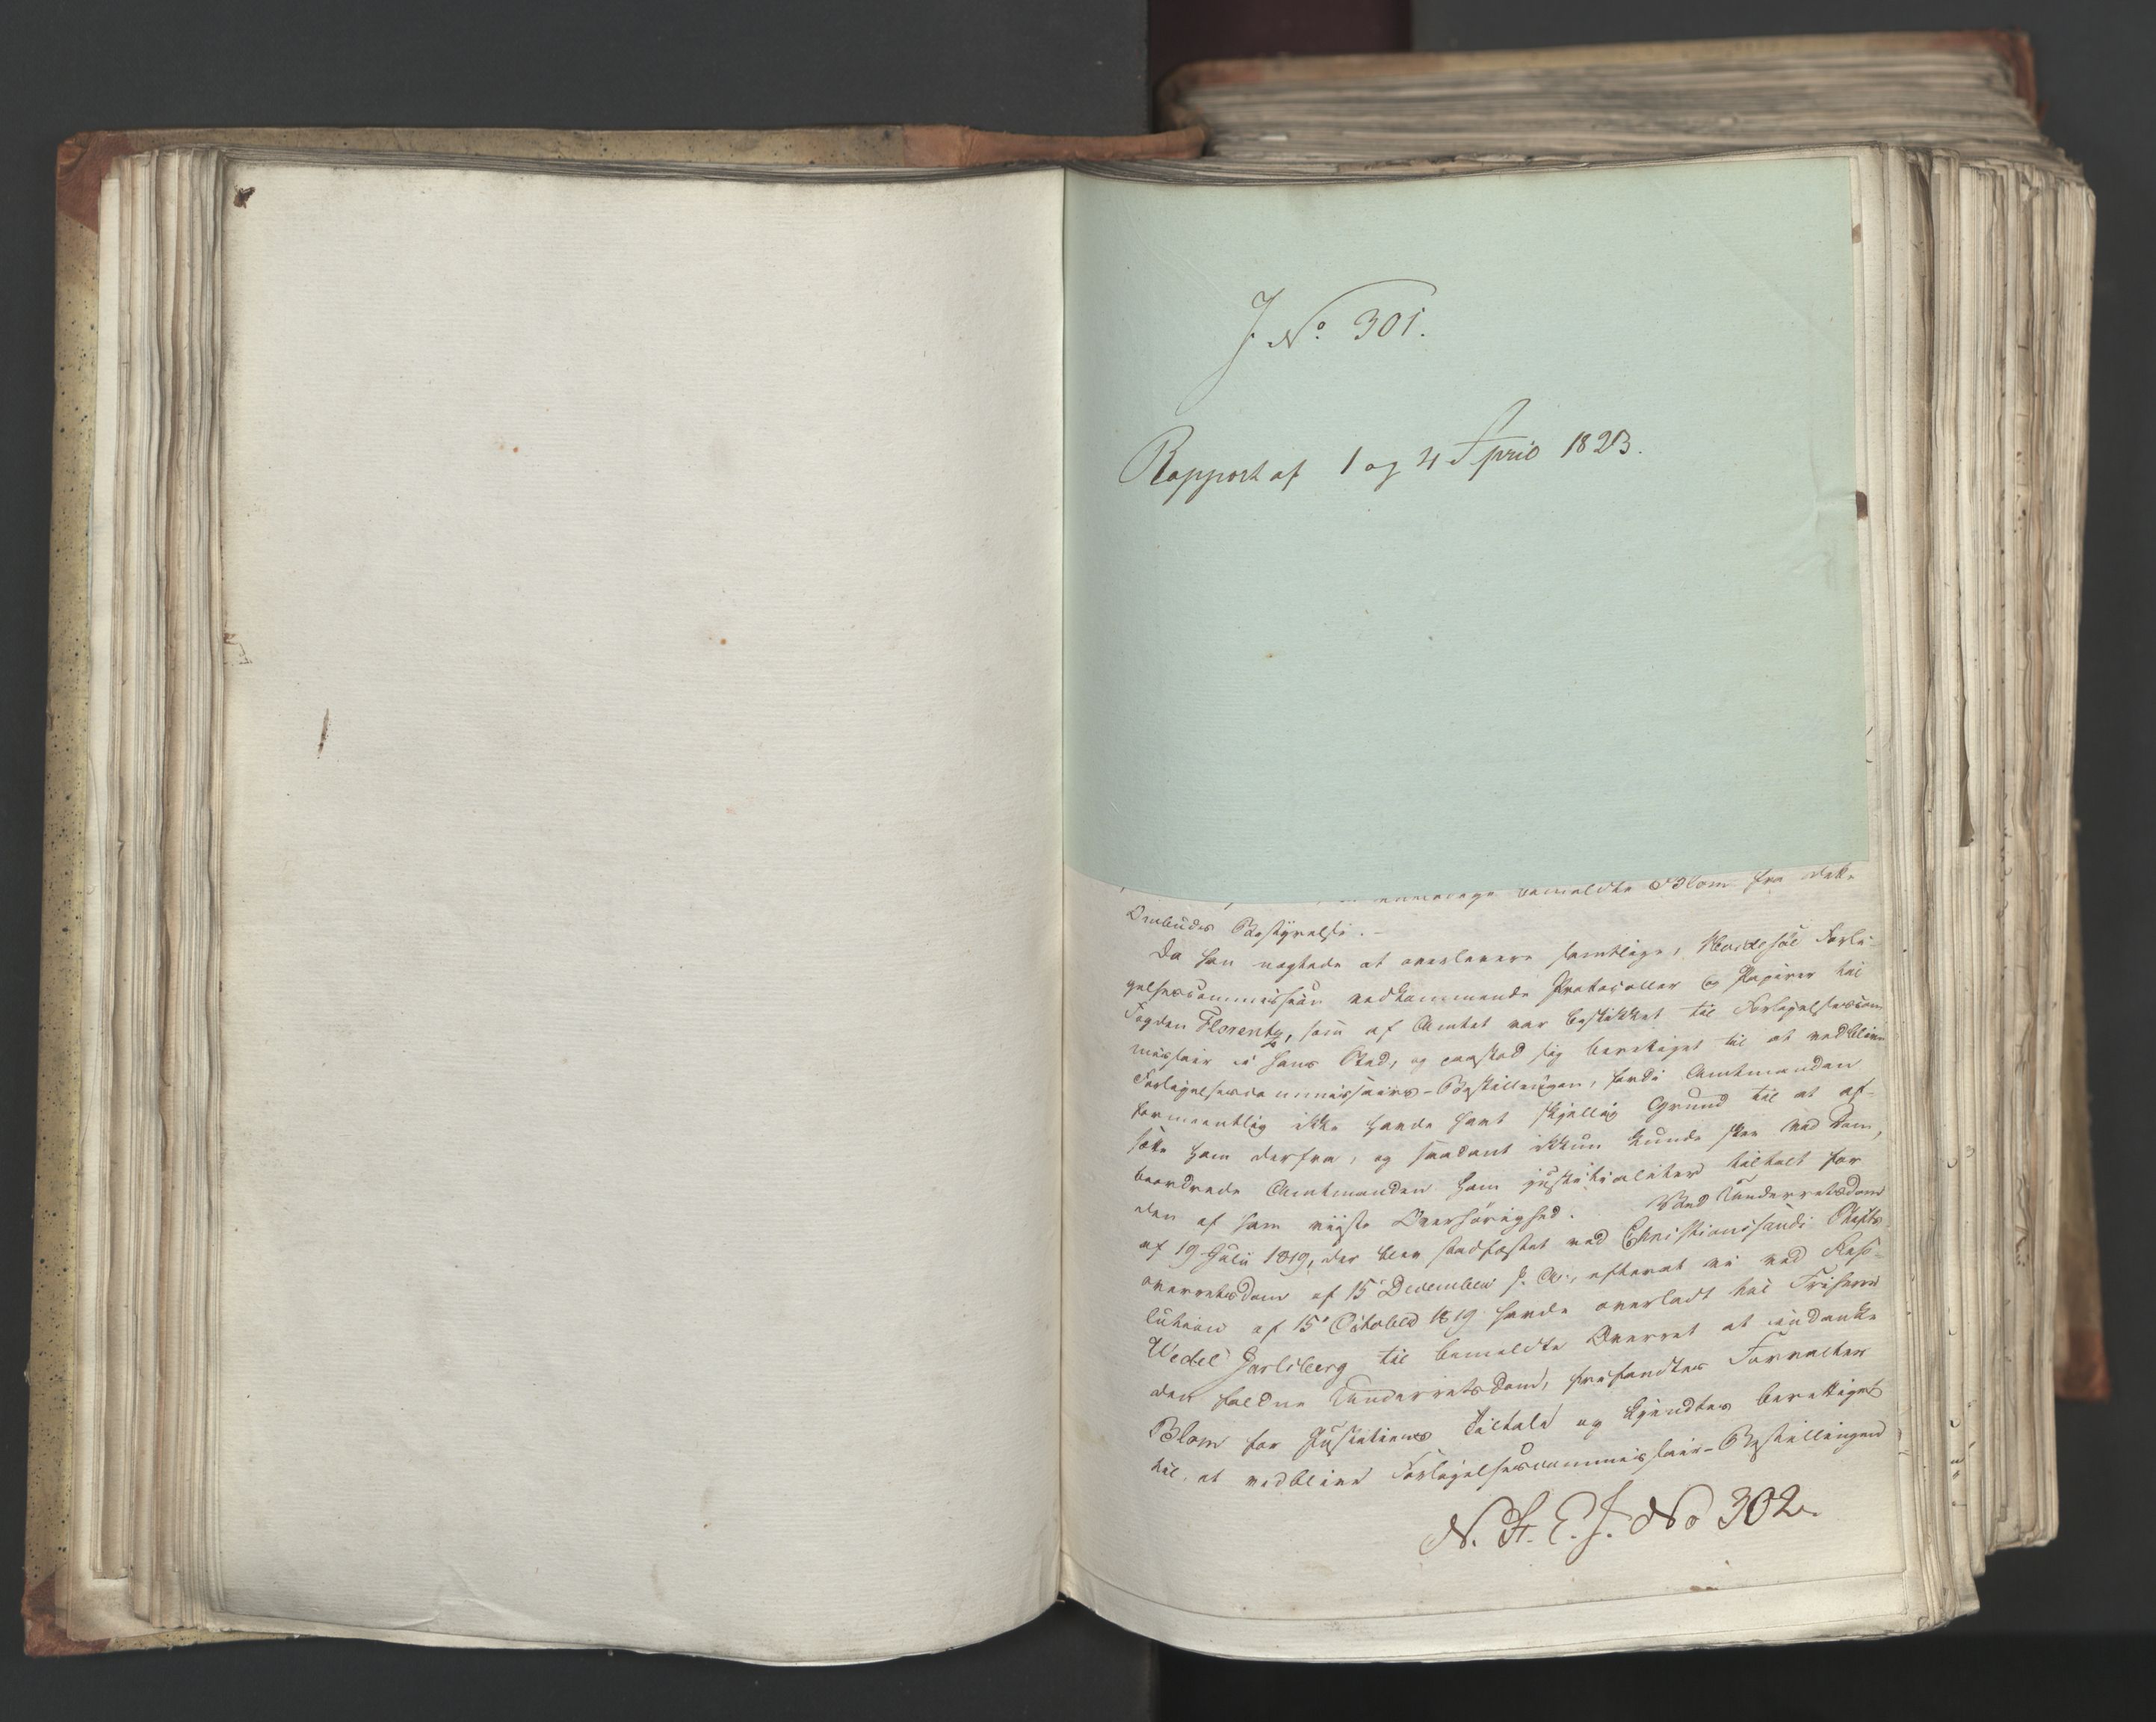 J. No. 301.
Rapport af 1 og 4 April 1823.
bemeldte Blom fra dette
Ombuds Bestyrelse. –
Da han negtede at overlevere samtlige, Forli-
gelsescommission vedkommende Protocoller og Papirer til
Fogden Florentz, som af Amtet var beskikket til Forligelsescom-
missair i hans Sted, og paastod sig berettiget til at vedblive
Forligelsescommissairs-Bestillingen, fordi Amtmanden
formeentlig ikke havde havt skjellig Grund til at af-
sætte ham derfra, og saadant ikkun kunde skee ved Dom,
beordrede Amtmanden ham justitialiter tiltalt for
den af ham viiste Overhørighed. Ved Underretsdom
af 19 Julii 1819, der blev stadfæstet ved Christianssands Stifts-
overretsdom af 15 December s. A., efterat vi ved Reso-
lution af 15 October 1819 havde overladt til Friherre
Wedel Jarlsberg til bemeldte Overret at indanke
den faldne Underretsdom, frifandtes Forvalter
Blom for Justitiens Tiltale og kjendtes berettiget
til, at vedblive Forligelsescommissair-Bestillingen
N. St. E. J. No 302.